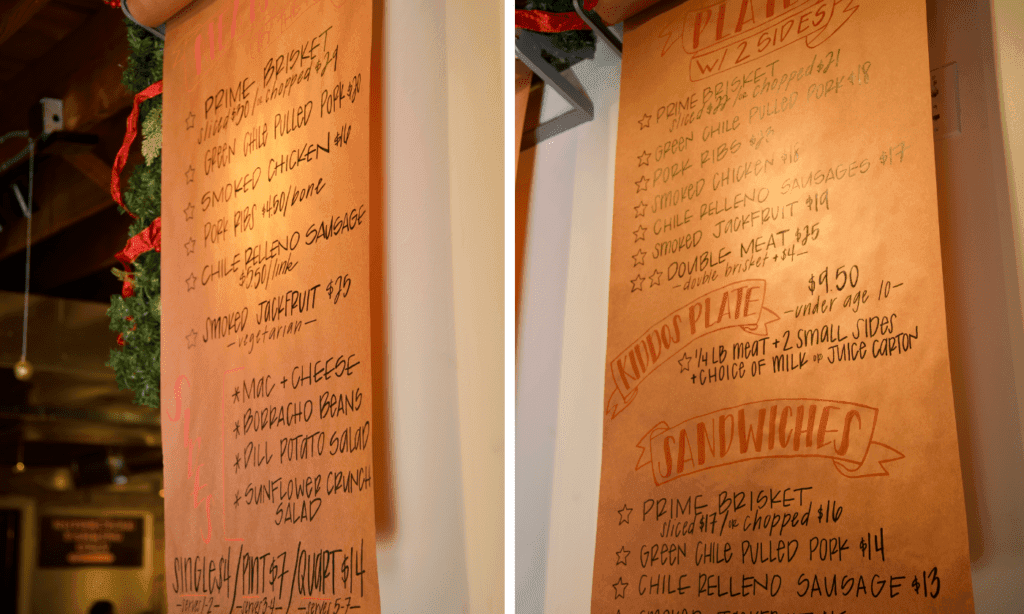 PRIME BRISKET
sliced $30/or chopped $29
GREEN CHILE PULLED PORK $20
SMOKED CHICKEN $16
PORK RIBS $450/bone
CHILE RELLENO SAUSAGE
$250/link
SMOKED JACKFRUIT $25
-vegetarian-
*MAC + CHEESE
*BORRACHO BEANS
*DILL POTATO SALAD
*SUNFLOWER CRUNCH
SALAD
SINGLE $4/PINT $7/QUART $14
-serves 1-2- -serves 3-4- -serves 5-7-
PLATES
W/2 SIDES
PRIME BRISKET
sliced $22/or chopped $21
GREEN CHILE PULLED PORK $18
PORK RIBS $23
SMOKED CHICKEN $18
CHILE RELLENO SAUSAGES $17
SMOKED JACKFRUIT $19
DOUBLE MEAT $25
-double brisket +$4-
KIDDOS PLATE
$9.50
-under age 10-
1/4 LB MEAT + 2 SMALL SIDES
+ CHOICE OF MILK or JUICE CARTON
SANDWICHES
PRIME BRISKET
sliced $17/or chopped $16
GREEN CHILE PULLED PORK $14
CHILE RELLENO SAUSAGE $13